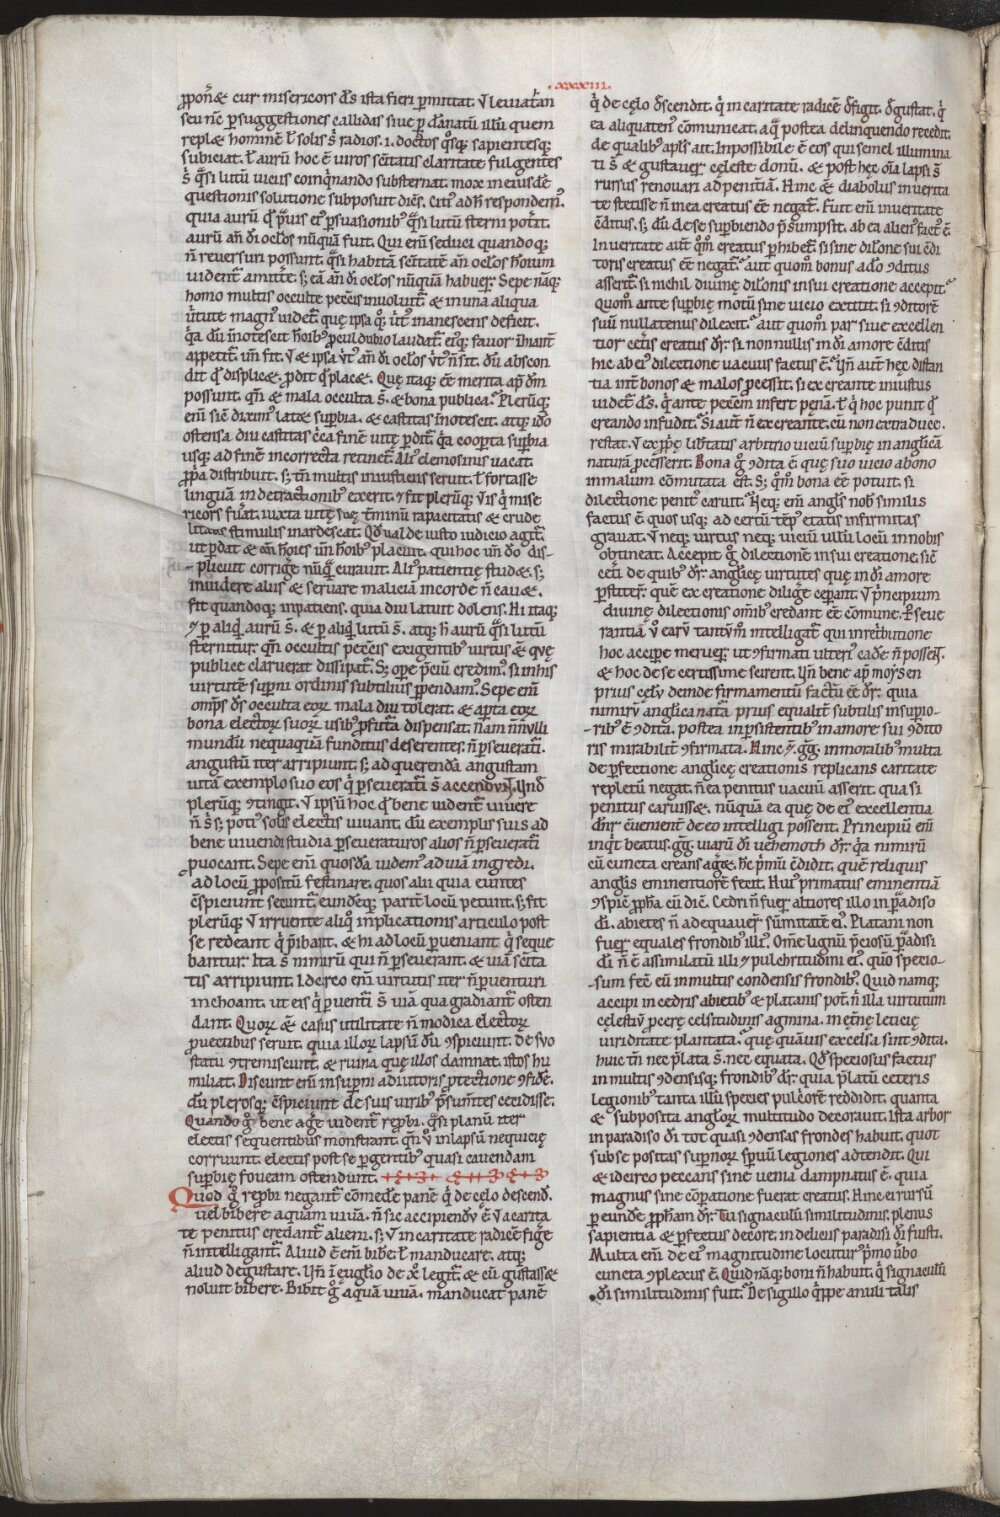 .xxxiii.
p̱ponit᷑ & cur misericors d̅s ista fieri p̱mittat. V̓ leuiatan
seu nc̅ p̱ suggestiones callidas siue p̱ da̅natu̅ illu̅ que̅
replet homine̅. ł solis s̅ radios .i. doctos qosq; sapientesq;
subiciat. ł auru̅ hoc e̅ uiros sc̅itatis claritate fulgentes
s̅ qͣsi lutu̅ uiciis coinqͥnando substernat. mox in eiusde̅
questionis solutione subposuit dice̅s. Citi᷒ ad h̅ responderim᷒.
quia auru̅ qd̅ pͣuis ei᷒ p̱suasionib᷒ qͣsi lutu̅ sterni potͥit.
auru̅ an̅ di̅ oclos nu̅qua̅ fuit. Qui eni̅ seduci quandoq;
n̅ reuersuri possunt. qͣsi habita̅ sc̅itate̅ an̅ oclos ho̅ium
uident᷑ amittͤe. s; ea̅ an̅ di̅ oclos nu̅qua̅ habuer᷑. Sepe na̅q;
homo multis occulte pcc̅is inuoluit᷑. & in una aliqua
uͥtute magn᷒ uidet᷑. quę ipsa qoq; uͥt᷒ inanescens deficit.
qͥa du̅ in̅otescit ho̅ib᷒ p̱culdubio laudat᷑. ei᷒q; fauor d̅hiant᷑
appetit᷑. un̅ fit. V̓ & ipsa uͥt᷒ an̅ di̅ oclos uͥt᷒ n̅ sit. du̅ abscon
dit qd̅ displicet. p̱dit qd̅ placet. Quę itaq; e̅e merita ap̅ d̅m
possunt. qn̅ & mala occulta s̅. & bona publica᷑. Pleru̅q;
eni̅ sic̅ dixim᷒ latet sup̱bia. & castitas in̅otescit. atq; ido
ostensa diu castitas cͥca fine̅ uitę p̱dit᷑. qͥa coop̱ta sup̱bia
usq; ad fine̅ incorrecta retinet᷑. Ali᷒ elemosinis uacat.
p̱pͥa distribuit. s; tn̅ multis iniusticiis seruit. ł fortasse
lingua̅ in detractionib᷒ exerit. & fit pleru̅q; V̓ is qͥ mise
ricors fuͤat. iuxta uitę suę tͤminu̅ rapacitatis & crude
litatis stimulis inardescat. Qd̅ ualde iusto iudicio agit᷑.
ut p̱dat & an̅ ho̅ies un̅ ho̅ib᷒ placuit. qui hoc un̅ d̅o dis-
plicuit corrigͤe nu̅qͣ curauit. Ali᷒ patientię studet. s;
inuidere aliis & seruare malicia̅ in corde n̅ cauet.
fit quandoq; inpatiens. quia diu latuit dolens. Hi itaq;
& p̱ aliqͥd auru̅ s̅. & p̱ aliqͥd lutu̅ s̅. atq; h̅ auru̅ qͣsi lutu̅
sternit᷑. qn̅ occultis pcc̅is exigentib᷒ uirtus & quę
publice claruerat dissipat᷑. S; opͤe pͨiu̅ credim᷒. si in his
uirtute̅ sup̱ni ordinis subtilius p̱pendam᷒. Sepe eni̅
omp̅s d̅s occulta eor̅ mala diu tolerat. & ap̱ta eor̅
bona electoꝝ suoꝝ usib᷒ p̱futͣa dispensat. na̅m n̅n̅ulli
mundu̅ nequaqua̅ funditus deserentes. n̅ p̱seuerati.
angustu̅ iter arripiunt. s; ad querenda̅ angustam
uita̅ exemplo suo eos qͥ p̱seuerati s̅ accendunt. Un̅
pleru̅q; c̅tingit. V̓ ipsu̅ hoc qd̅ bene uident᷑ uiuere
n̅ sͥ s; poti᷒ solis electis uiuant. du̅ exemplis suis ad
bene uiuendi studia p̱seueraturos alios n̅ p̱seuerati
p̱uocant. Sepe eni̅ quosda̅ uidem᷒ ad uia̅ ingredi.
ad locu̅ p̱positu̅ festinare. quos alii quia euntes
c̅spiciunt secunt᷑. eunde̅q; parit᷑ locu̅ petunt. s; fit
pleru̅q; V̓ irruente aliqͦ inplicationis articulo post
se redeant qͥ pͥibant. & hi ad locu̅ p̱ueniant qͥ seque
bantur. Ita s̅ nimiru̅ qui n̅ p̱seuerant. & uia̅ sc̅ita
tis arripiunt. Idcirco eni̅ uirtutis iter n̅ p̱uenturi
inchoant. ut eis qͥ p̱uenti s̅ uia̅ qua gradiant᷑ osten
dant. Quoꝝ & casus utilitate n̅ modica electoꝝ
p̱uectibus seruit. quia illoꝝ lapsu̅ du̅ c̅spiciunt. de suo
statu c̅tremiscunt. & ruina quę illos damnat. istos hu
miliat. Discunt eni̅ in sup̱ni adiutoris p̱tectione c̅fidͤe.
du̅ plerosq; c̅spiciunt de suis uirib᷒ pͤsumtes cecidisse.
Quando gͦ bene agͤe uident᷑ rep̱bi. qͣsi planu̅ iter
electis sequentibus monstrant. qn̅ uͦ in lapsu̅ nequicię
corruunt. electis post se p̱gentib᷒ quasi cauendam
sup̱bię fouea̅ ostendunt.
Quod gͦ rep̱bi negant᷑ co̅medͤe pane̅ qͥ de cęlo descend.
uel bibere aqua̅ uiua̅. n̅ sic accipiendu̅ e̅ V̓ a carita
te penitus credant᷑ alieni. s; V̓ in caritate radice̅ figͤe
n̅ intelligant᷑. Aliud e̅ eni̅ bibͤe. ł manducare. atq;
aliud degustare. Un̅ i̅ eug̅lio de xo̅ legit᷑. & cu̅ gustasset
noluit bibere. Bibit gͦ aqua̅ uiua̅. manducat pane̅
qͥ de cęlo d̅scendit. qͥ in caritate radice̅ d̅figit. d̅gustat. qͥ
ea aliquaten᷒ co̅municat. a qͣ postea delinquendo recedit.
de qualib᷒ apl̅s ait. Impossibile e̅ eos qui semel illumina
ti s̅ & gustauer᷑ cęleste donu̅. & post hęc om̅a lapsi s̅
rursus renouari ad penitia̅. Hinc e̅ diabolus in uerita
te stetisse n̅ in ea creatus e̅e negat᷑. Fuit eni̅ in ueritate
c̅ditus. s; du̅ de se sup̱biendo pͤsumpsit. ab ea alien᷒ fact᷒ e̅.
In ueritate aut̅ qom̅ creatus p̱hibet᷑. si sine dil̅one sui c̅di
toris creatus e̅e negat᷑. aut quom̅ bonus a d̅o c̅ditus
asserit᷑. si nichil diuinę dil̅onis in sui creatione accepit.
Quom̅ ante sup̱bię motu̅ sine uicio extitit. si c̅ditore̅
suu̅ nullatenus dilexit. aut quom̅ par siue excellen
tior cet̅is creatus d̅r. si non nullis in di̅ amore c̅ditis
hic ab ei᷒ dilectione uacuus factus e̅. Un̅ aut̅ hęc distan
tia int̅ bonos & malos p̱cessit. si ex creante iniustus
uidet᷑ d̅s. qͥ ante pcc̅em infert pęna̅. ł qͥ hoc punit qd̅
creando infudit. Si aut̅ n̅ ex creante. eu̅ non extra duce.
restat. V̓ ex p̱pͥę lib̅tatis arbitrio uiciu̅ sup̱bię in anglica̅
natura̅ p̱cesserit. Bona gͦ c̅dita e̅. quę suo uicio a bono
in malum co̅mutata est. S; qom̅ bona e̅e potuit. si
dilectione penit᷒ caruit. Neq; eni̅ angl̅s nob̅ similis
factus e̅. quos usq; ad certu̅ te̅p᷒ etatis infirmitas
grauat. V̓ neq; uirtus neq; uiciu̅ ullu̅ locu̅ in nobis
obtineat. Accepit gͦ dilectione̅ in sui creatione. sic̅
cet̅i de quib᷒ d̅r. anglicę uirtutes quę in di̅ amore
p̱stiter᷑. que̅ ex creatione diligͤe cep̱ant. V̓ pͥncipium
diuinę dilectionis om̅ib᷒ credant᷑ e̅e co̅mune. P̱seue
rantia̅ uͦ earu̅ tantu̅m̅ intelligat᷑ qui in ret̅butione
hoc accipe meruer᷑. ut c̅firmati ulteri᷒ cadͤe n̅ possent.
& hoc de se certissime scirent. Un̅ bene ap̅ moysen
prius cęlu̅ deinde firmamentu̅ factu̅ e̅e d̅r. quia
nimiru̅ anglica nat̅a prius equalit᷑ subtilis in sup̱io-
rib᷒ e̅ c̅dita. postea in p̱sistentib᷒ in amore sui c̅dito
ris mirabilit᷑ c̅firmata. Hinc & gg̅. in moralib᷒ multa
de p̱fectione anglicę creationis replicans caritate
repletu̅ negat. n̅ ea penitus uacuu̅ asserit. quasi
penitus caruisset. nu̅qua̅ ea quę de ei᷒ excellentia
dn̅r c̅uenient᷑ de eo intelligi possent. Principiu̅ eni̅
inqͥt beatus. gg̅. uiaru̅ di̅ uehemoth d̅r. qͥa nimiru̅
cu̅ cuncta creans agͤet. hc̅ pͥmu̅ c̅didit. que̅ reliquis
anglis eminentiore̅ fecit. Hui᷒ primatus eminentia̅
c̅spic̅ p̱pha cu̅ dic̅. Cedri n̅ fuer᷑ altiores illo in pͣadiso
di̅. abietes n̅ adequauer᷑ su̅mitate̅ ei᷒. Platani non
fuer᷑ equales frondib᷒ illi᷒. Om̅e lignu̅ pͨiosu̅ pͣadisi
di̅ n̅ e̅ assimilatu̅ illi & pulchritudini ei᷒. quo̅ specio-
sum feci eu̅ in multis condensis frondib᷒. Quid namq;
accipi in cedris abietib᷒ & platanis pot̅. n̅ illa uirtutum
cęlestiu̅ p̱cerę celsitudinis agmina. in ęt̅nę leticię
uiriditate plantata. quę qua̅uis excelsa sint c̅dita.
huic tn̅ nec p̱lata s̅. nec equata. Qd̅ speciosus factus
in multis c̅densisq; frondib᷒ d̅r. quia p̱latu̅ ceteris
legionib᷒ tanta illu̅ species pulcͥore̅ reddidit. quanta
& subposita angloꝝ multitudo decorauit. Ista arbor
in paradiso di̅ tot quasi c̅densas frondes habuit. quot
sub se positas sup̱noꝝ sp̅uu̅ legiones adtendit. Qui
& idcirco peccans sine uenia dampnatus e̅. quia
magnus sine co̅paratione fuerat creatus. Hinc ei rursu̅
p̱ eunde̅ p̱pha̅m d̅r. Tu signaculu̅ similitudinis. plenus
sapientia & p̱fectus decore. in deliciis paradisi di̅ fuisti.
Multa eni̅ de ei᷒ magnitudine locutur᷒ pͥmo uͤbo
cuncta c̅plexus e̅. Quid na̅q; boni n̅ habuit. qͥ signaculu̅
di̅ similitudinis fuit. De sigillo qͥppe anuli talis